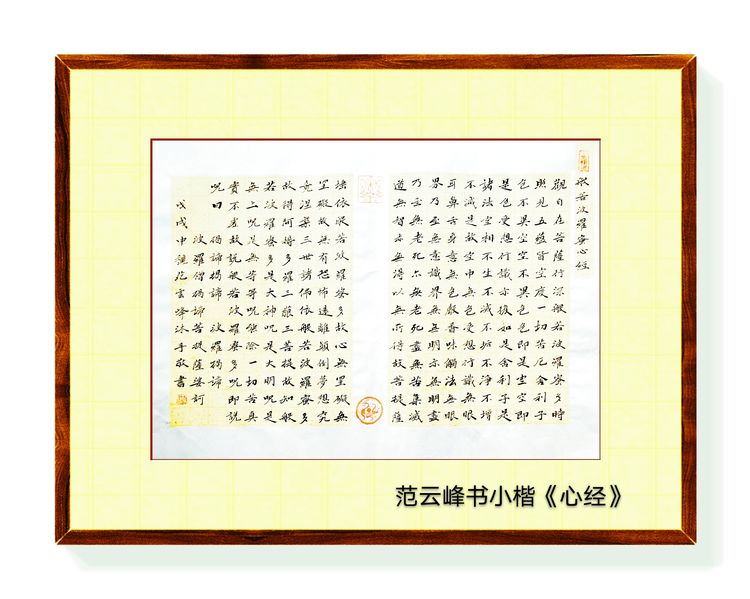 般若波羅蜜心經
觀自在菩薩行深般若波羅蜜多時
照見五蘊皆空度一切苦厄舍利子
色不異空空不異色色即是空空即
是色受想行識亦復如是舍利子是
諸法空相不生不滅不垢不淨不增
不減是故空中無色無受想行識無
耳鼻舌身意無色聲香味觸法無眼
界乃至無意識界無無明亦無明盡
乃至無老死亦無老死盡無苦集滅
道無智亦無得以無所得故菩提薩
埵依般若波羅蜜多故心無罣礙無
罣礙故無有恐怖遠離顛倒夢想究
竟涅槃三世諸佛依般若波羅蜜多
故得阿耨多羅三藐三菩提故知般
若波羅蜜多是大神呪是大明呪是
無上呪是無等等呪能除一切苦真
實不虛故說般若波羅蜜多呪即說
呪曰 揭諦揭諦 波羅揭諦
波羅僧揭諦菩提薩婆訶
戊戌中穐范云峰沐手敬書
范云峰书小楷《心经》